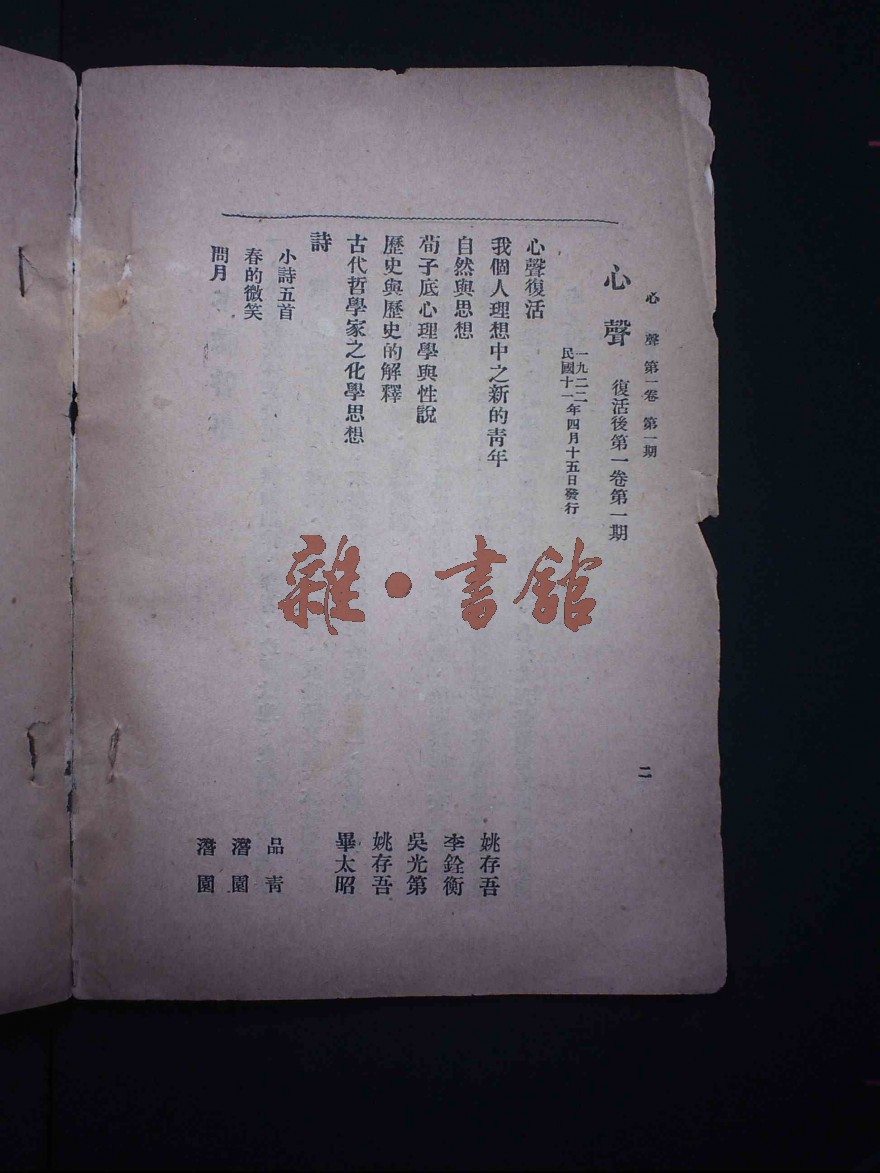 心聲 第一卷 第一期
二
心聲 復活後第一卷第一期
一九二二
民國十一年四月十五日發行
心聲復活
我個人理想中之新的青年 姚存吾
自然與思想 李銓衡
荀子底心理學與性說 吳光第
歷史與歷史的解釋 姚存吾
古代哲學家之化學思想 畢太昭
詩
小詩五首 品青
春的微笑 濳園
問月 濳園
雜·書館